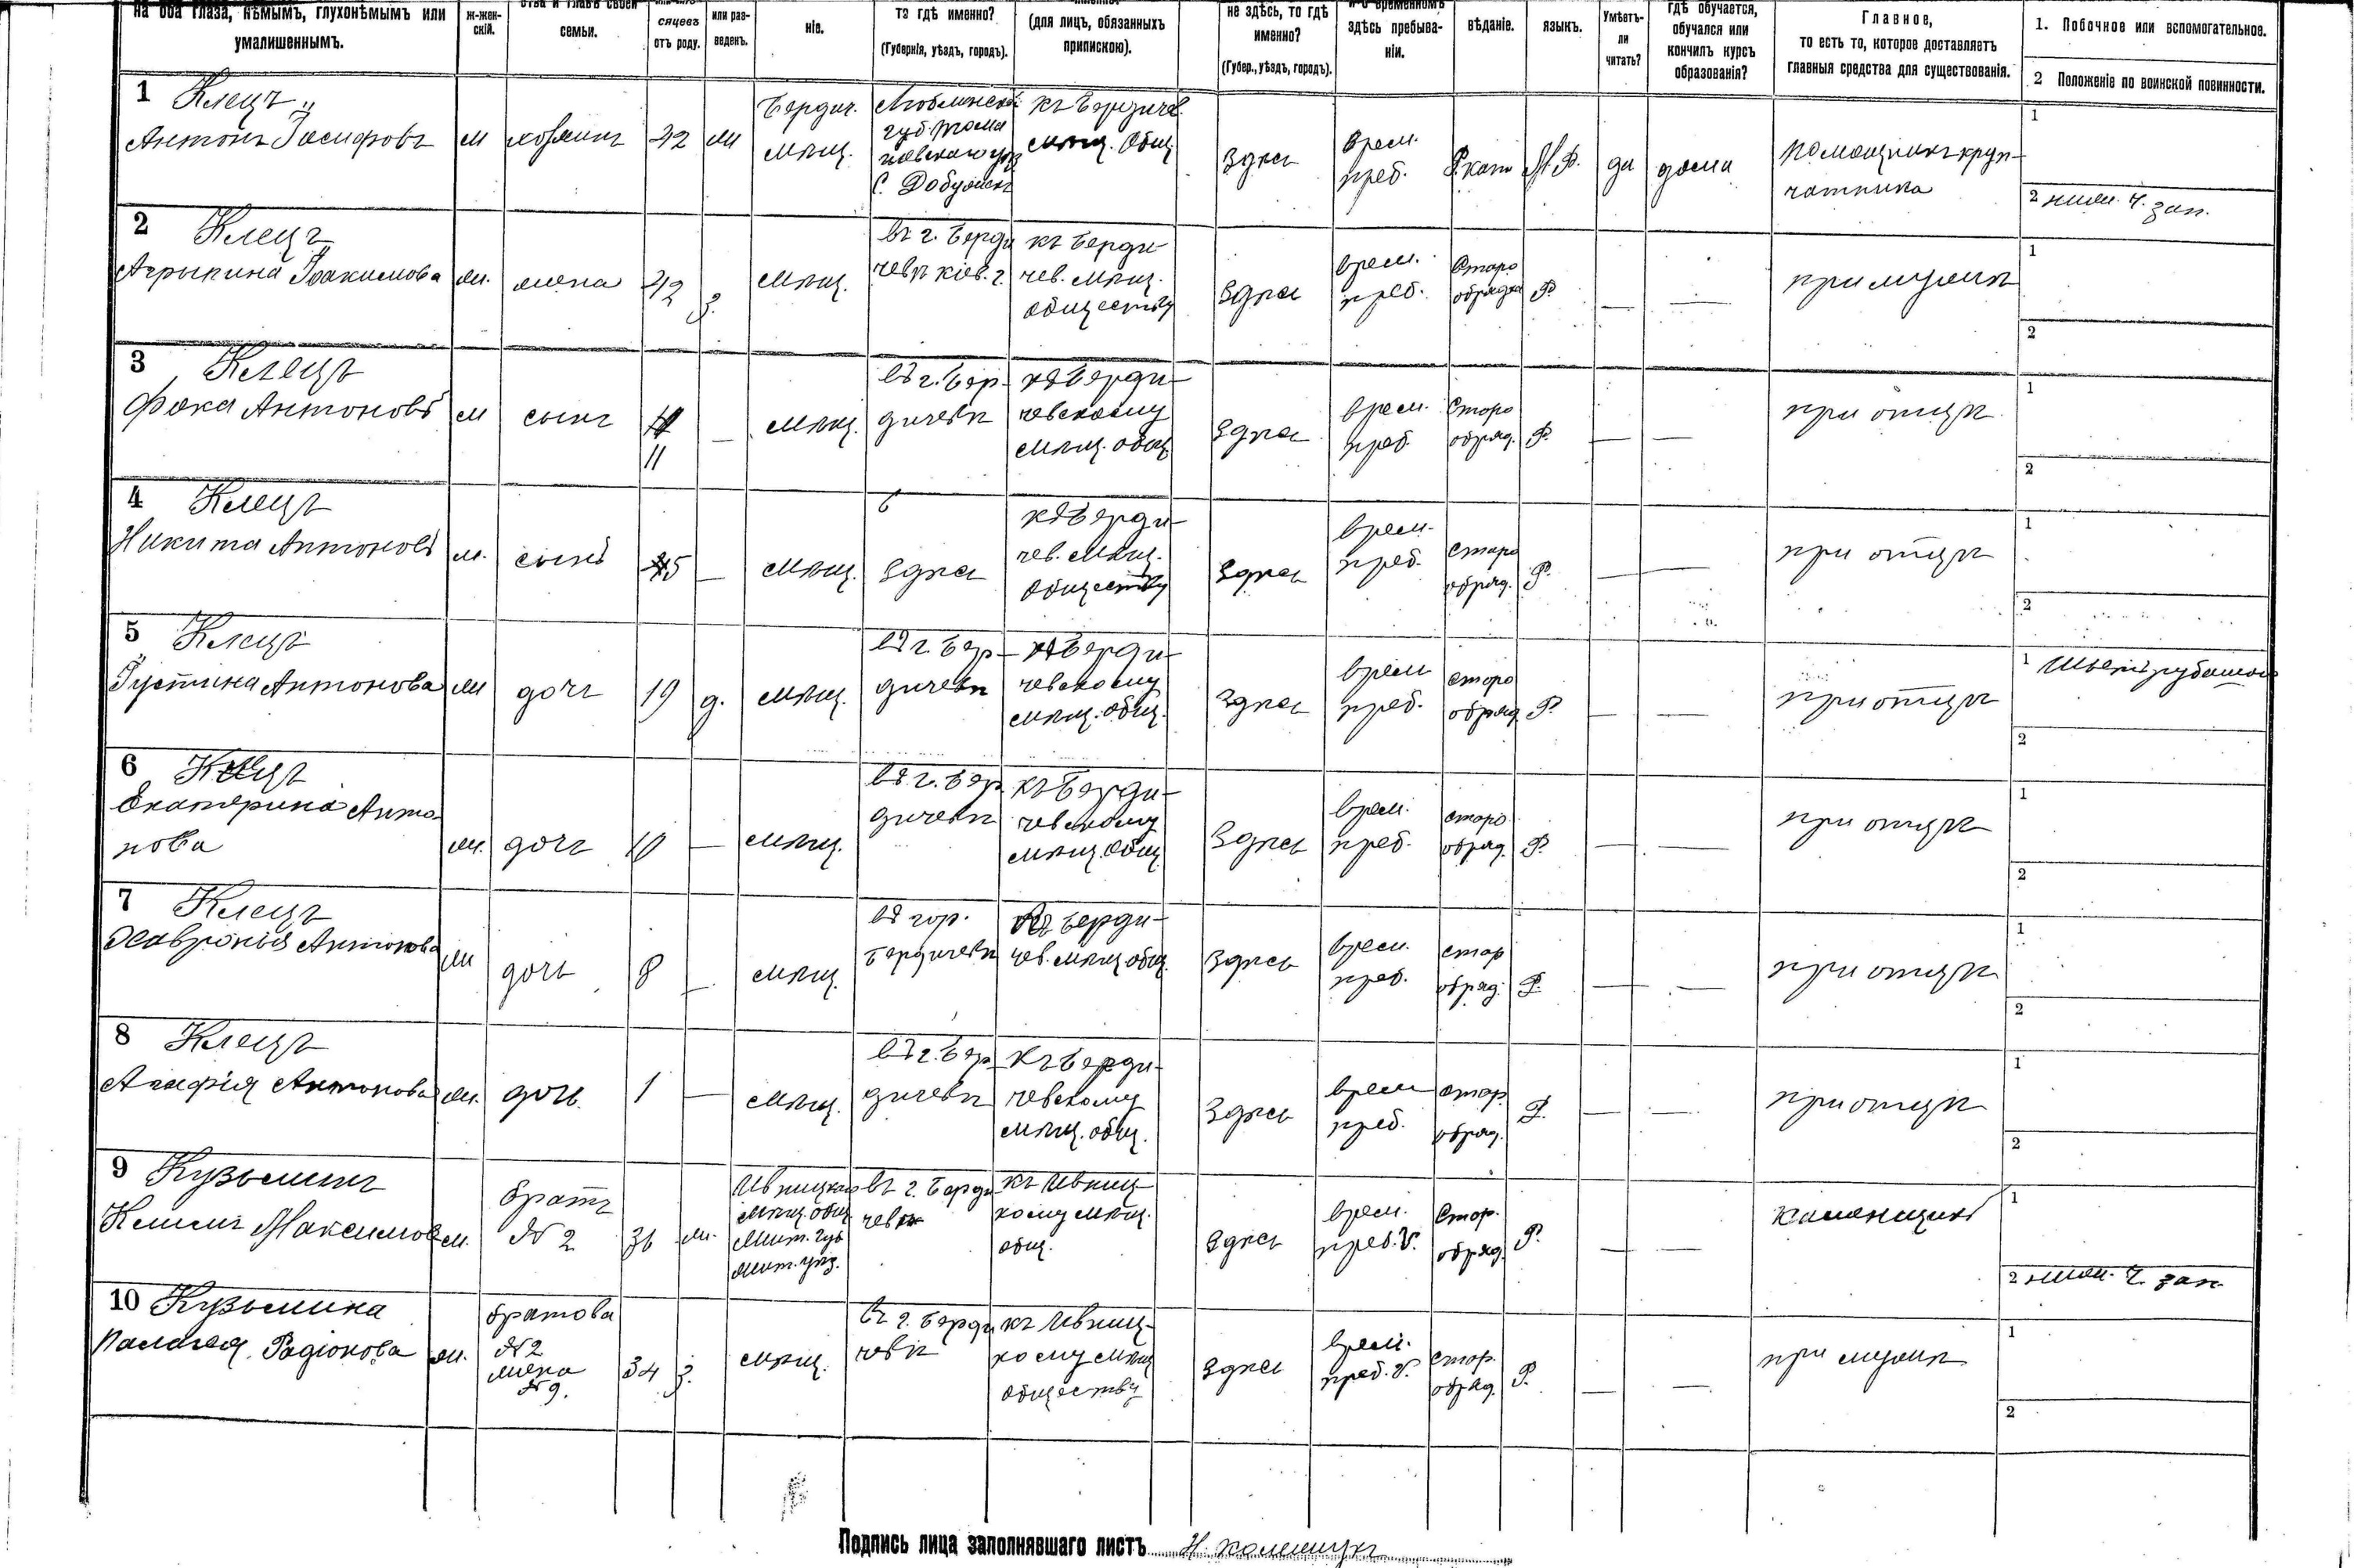 на оба глаза, нѣмымъ, глухонѣмымъ или умалишеннымъ.
ж-жен-скій.
ства и главѣ своей семьи.
сяцевъ отъ роду.
или раз-веденъ.
ніе.
та гдѣ именно?
(Губернія, уѣздъ, городъ).
(для лицъ, обязанныхъ припискою).
не здѣсь, то гдѣ именно?
(Губер., уѣздъ, городъ).
и о временномъ здѣсь пребыва-ніи.
вѣданіе.
языкъ.
Умѣетъ-ли читать?
гдѣ обучается, обучался или кончилъ курсъ образованія?
Главное,
то есть то, которое доставляетъ главныя средства для существованія.
1. Побочное или вспомогательное.
2 Положеніе по воинской повинности.
1 Клецъ
Антонъ Іосифовъ
м
хозяинъ
42
ж
Бердич. мѣщ.
Люблинской губ. Тома
С.
къ Бердичев. мѣщ. Общ.
Здѣсь
врем. преб.
Р. кат
М.Р.
да
дома
помощникъ круп-чатника
1
2 нижн. ч. зап.
2 Клецъ
Агрыпина Іоакимова
ж.
жена
42
з.
мѣщ.
въ г. Берди чевѣ Кіев. г.
къ Берди-чев. мѣщ. обществу
Здѣсь
врем. преб.
Старо обрядка
Р.
—
—
при мужѣ
1
2
3 Клецъ
Фока Антоновъ
м
сынъ
11
—
мѣщ.
въ г. Бер-дичевѣ
къ Берди-чевскому мѣщ. общ.
Здѣсь
врем. преб
Старо обряд.
Р.
—
—
при отцѣ
1
2
4 Клецъ
Никита Антоновъ
м.
сынъ
5
—
мѣщ.
Здѣсь
къ Берди-чев. мѣщ. Обществу
Здѣсь
врем. преб.
старо обряд.
Р.
—
—
при отцѣ
1
2
5 Клецъ
Іустина Антонова
ж
дочь
19
д.
мѣщ.
въ г. Бер-дичевѣ
къ Берди-чевскому мѣщ. общ.
Здѣсь
врем преб.
старо обряд
Р.
—
—
при отцѣ
1 Шьетъ рубашки
2
6 Клецъ
Екатерина Анто-нова
ж.
дочь
10
—
мѣщ.
въ г. Бер дичевѣ
къ Берди-чевскому мѣщ. Общ.
Здѣсь
врем. преб.
старо обряд.
Р.
—
—
при отцѣ
1
2
7 Клецъ
Хавронья Антонова
ж
дочь
8
—
мѣщ.
въ гор. Бердичевѣ
къ Берди-чев. мѣщ общ.
Здѣсь
врем. преб.
стар обряд.
Р.
—
—
при отцѣ
1
2
8 Клецъ
Агафія Антонова
ж.
дочь.
1
—
мѣщ.
въ г. Бер дичевѣ
Къ Берди-чевскому мѣщ. общ.
Здѣсь
врем преб.
стар. обряд.
Р.
—
—
при отцѣ
1
2
9 Кузьминъ
Климъ Максимов
м.
братъ № 2
36
ж.
Ивницкаго мѣщ. общ. Жит. губ Жит. уѣз.
въ г. Берди чевѣ
къ Ивниц-кому мѣщ. общ.
Здѣсь
врем. преб.
Стар. обряд.
Р.
—
—
каменщикъ
1
2 нижн. ч. зап.
10 Кузьмина
Палагея Радіонова
ж.
братова № 2 жена № 9.
34
з.
мѣщ.
въ г. Берди чевѣ
къ Ивниц-кому мѣщ обществу
Здѣсь
врем. преб.
стар. обряд.
Р.
—
—
при мужѣ
1
2
Подпись лица заполнявшаго листъ